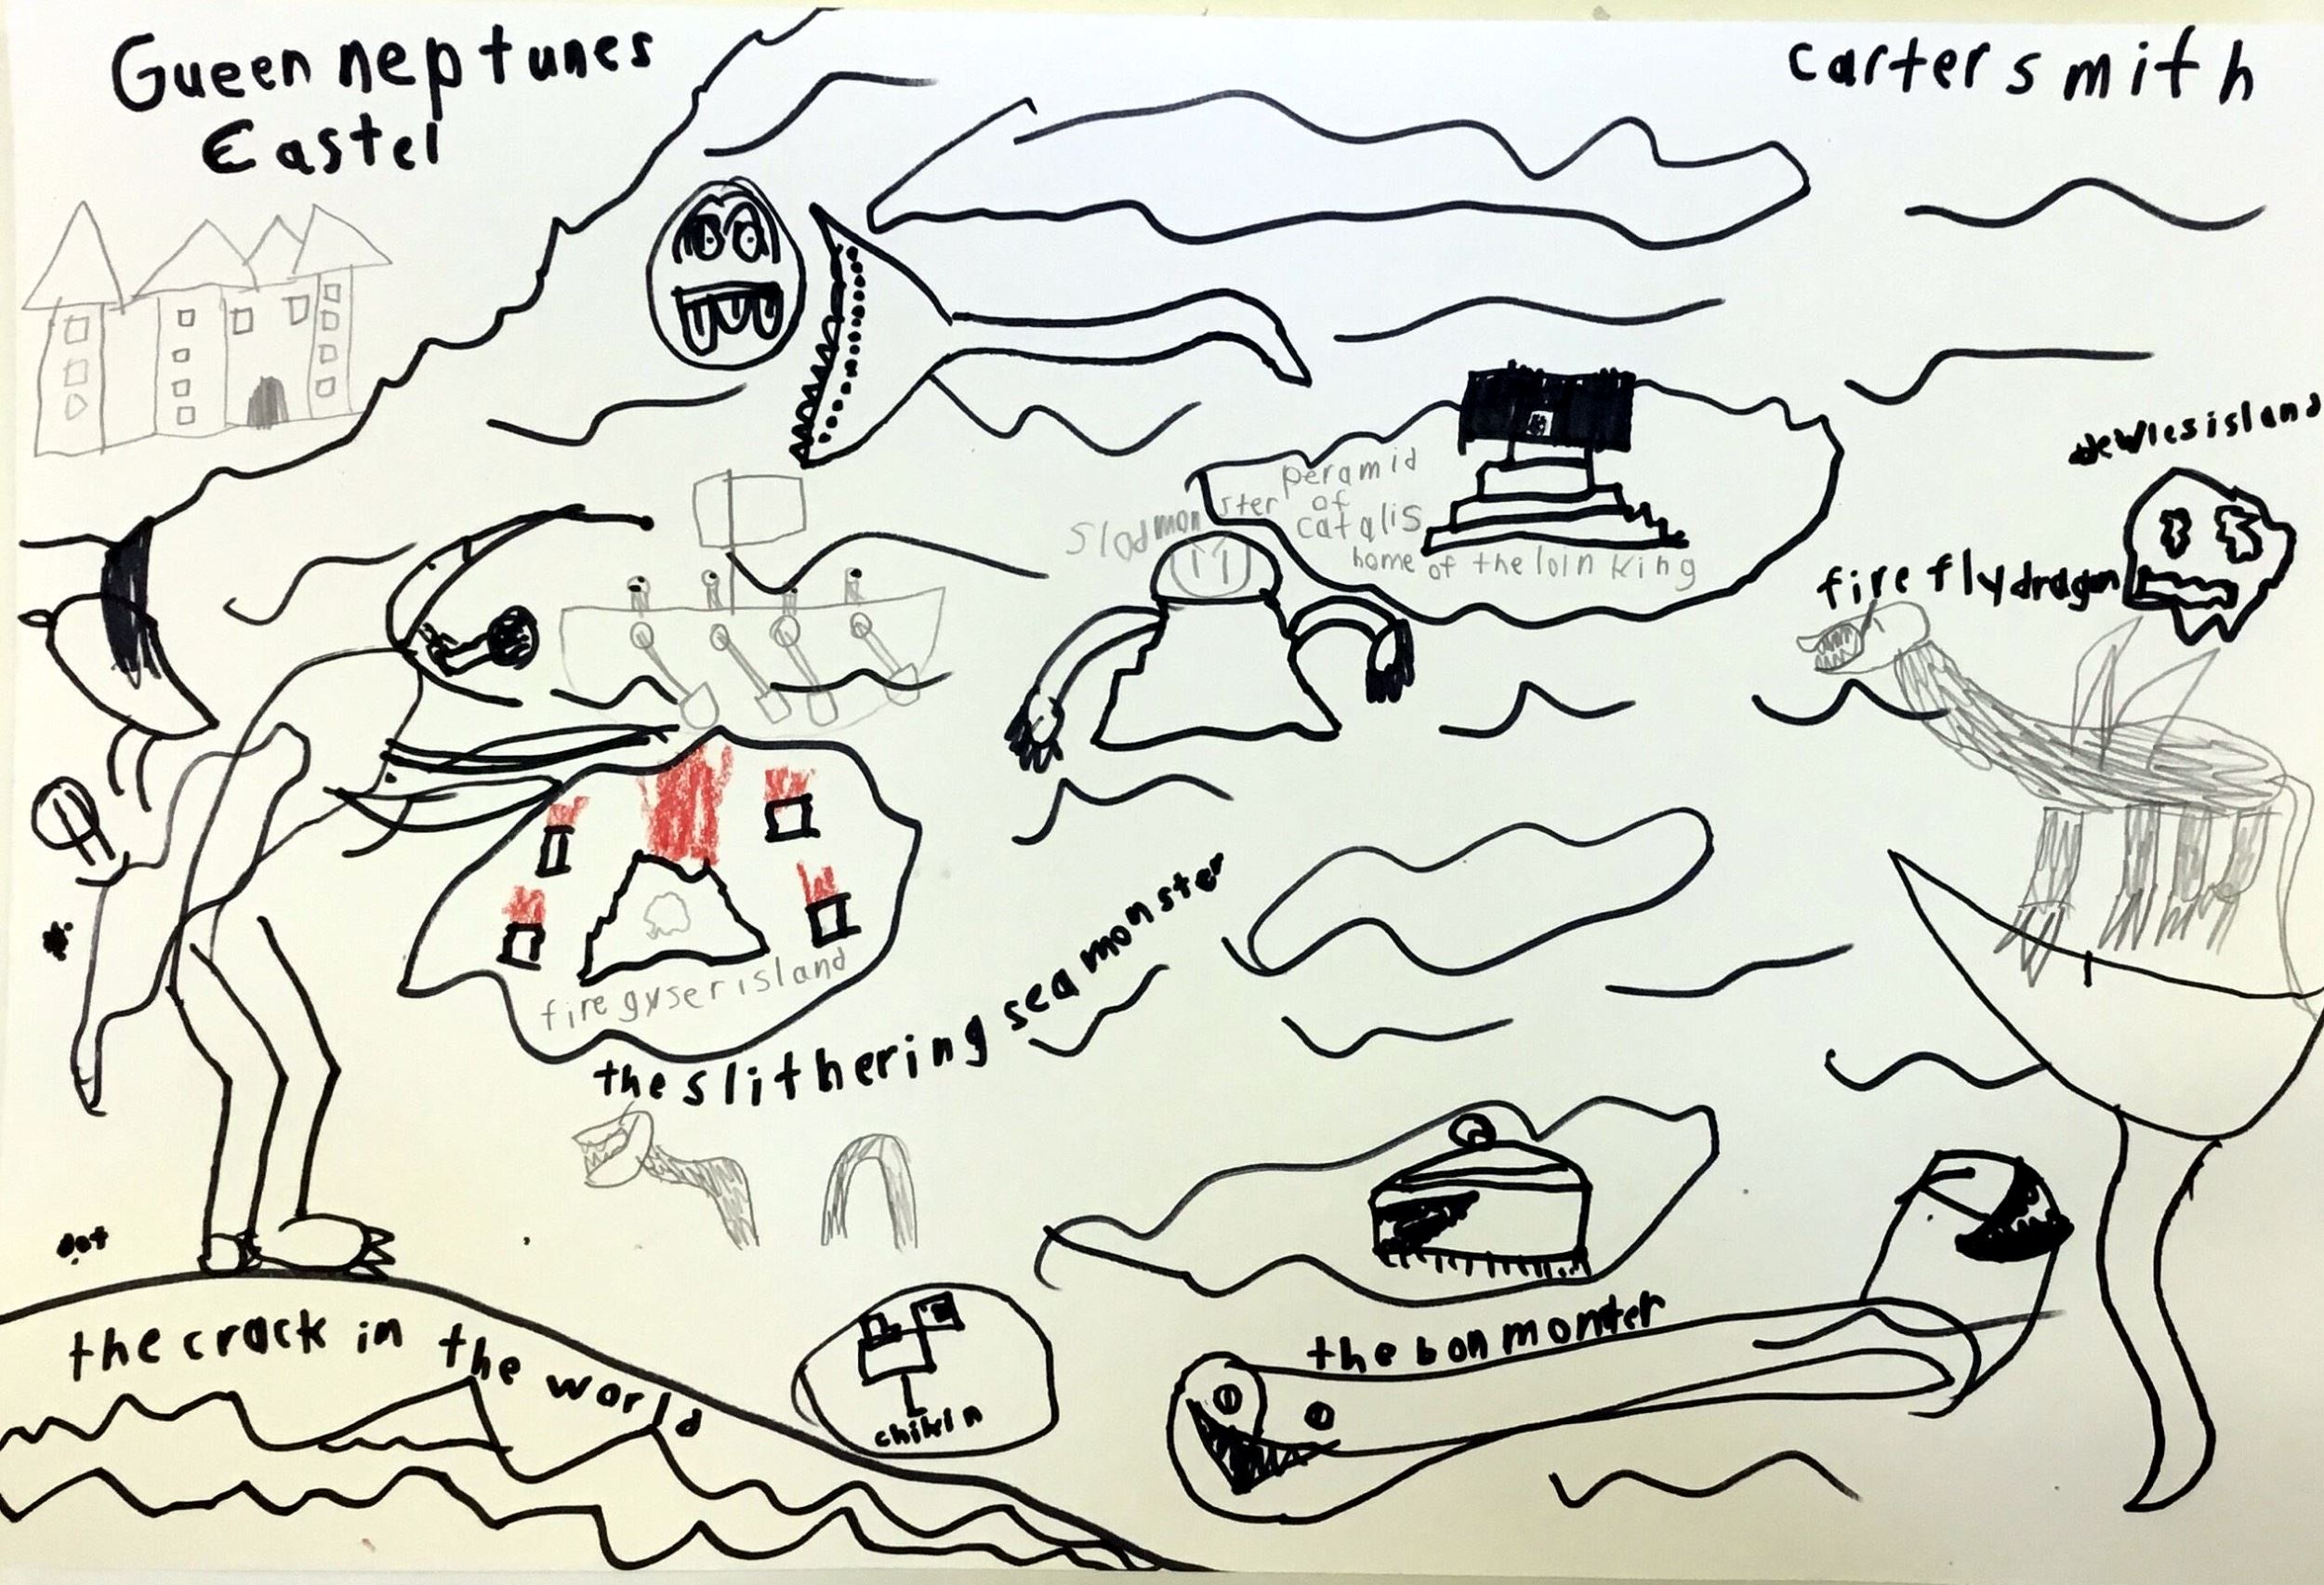 Gueen neptunes
Castel
carter smith
dewlesisland
peramid
of
catalis
home of the loin king
Slodmonster
fireflydragon
fire gyser island
the slithering sea monster
dot
the crack in the world
chikin
the bon monter